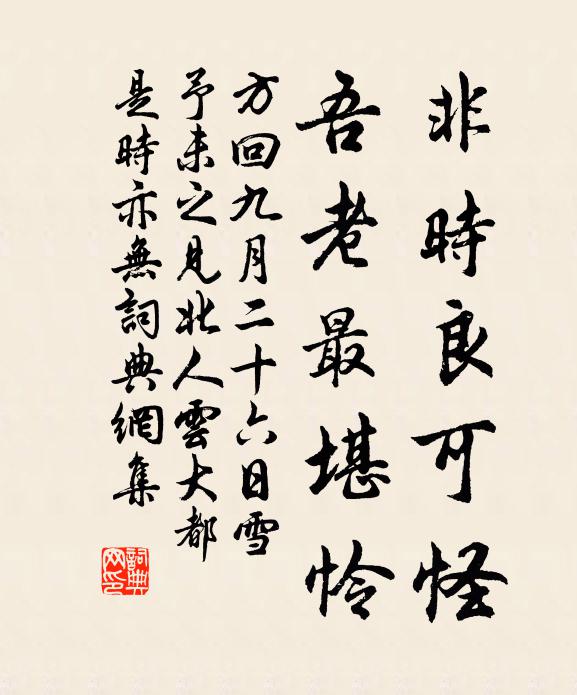 非時良可怪
吾老最堪怜
方回九月二十六日雪
予未之見北人雲大都
是時亦無詞典網集
詞典网印